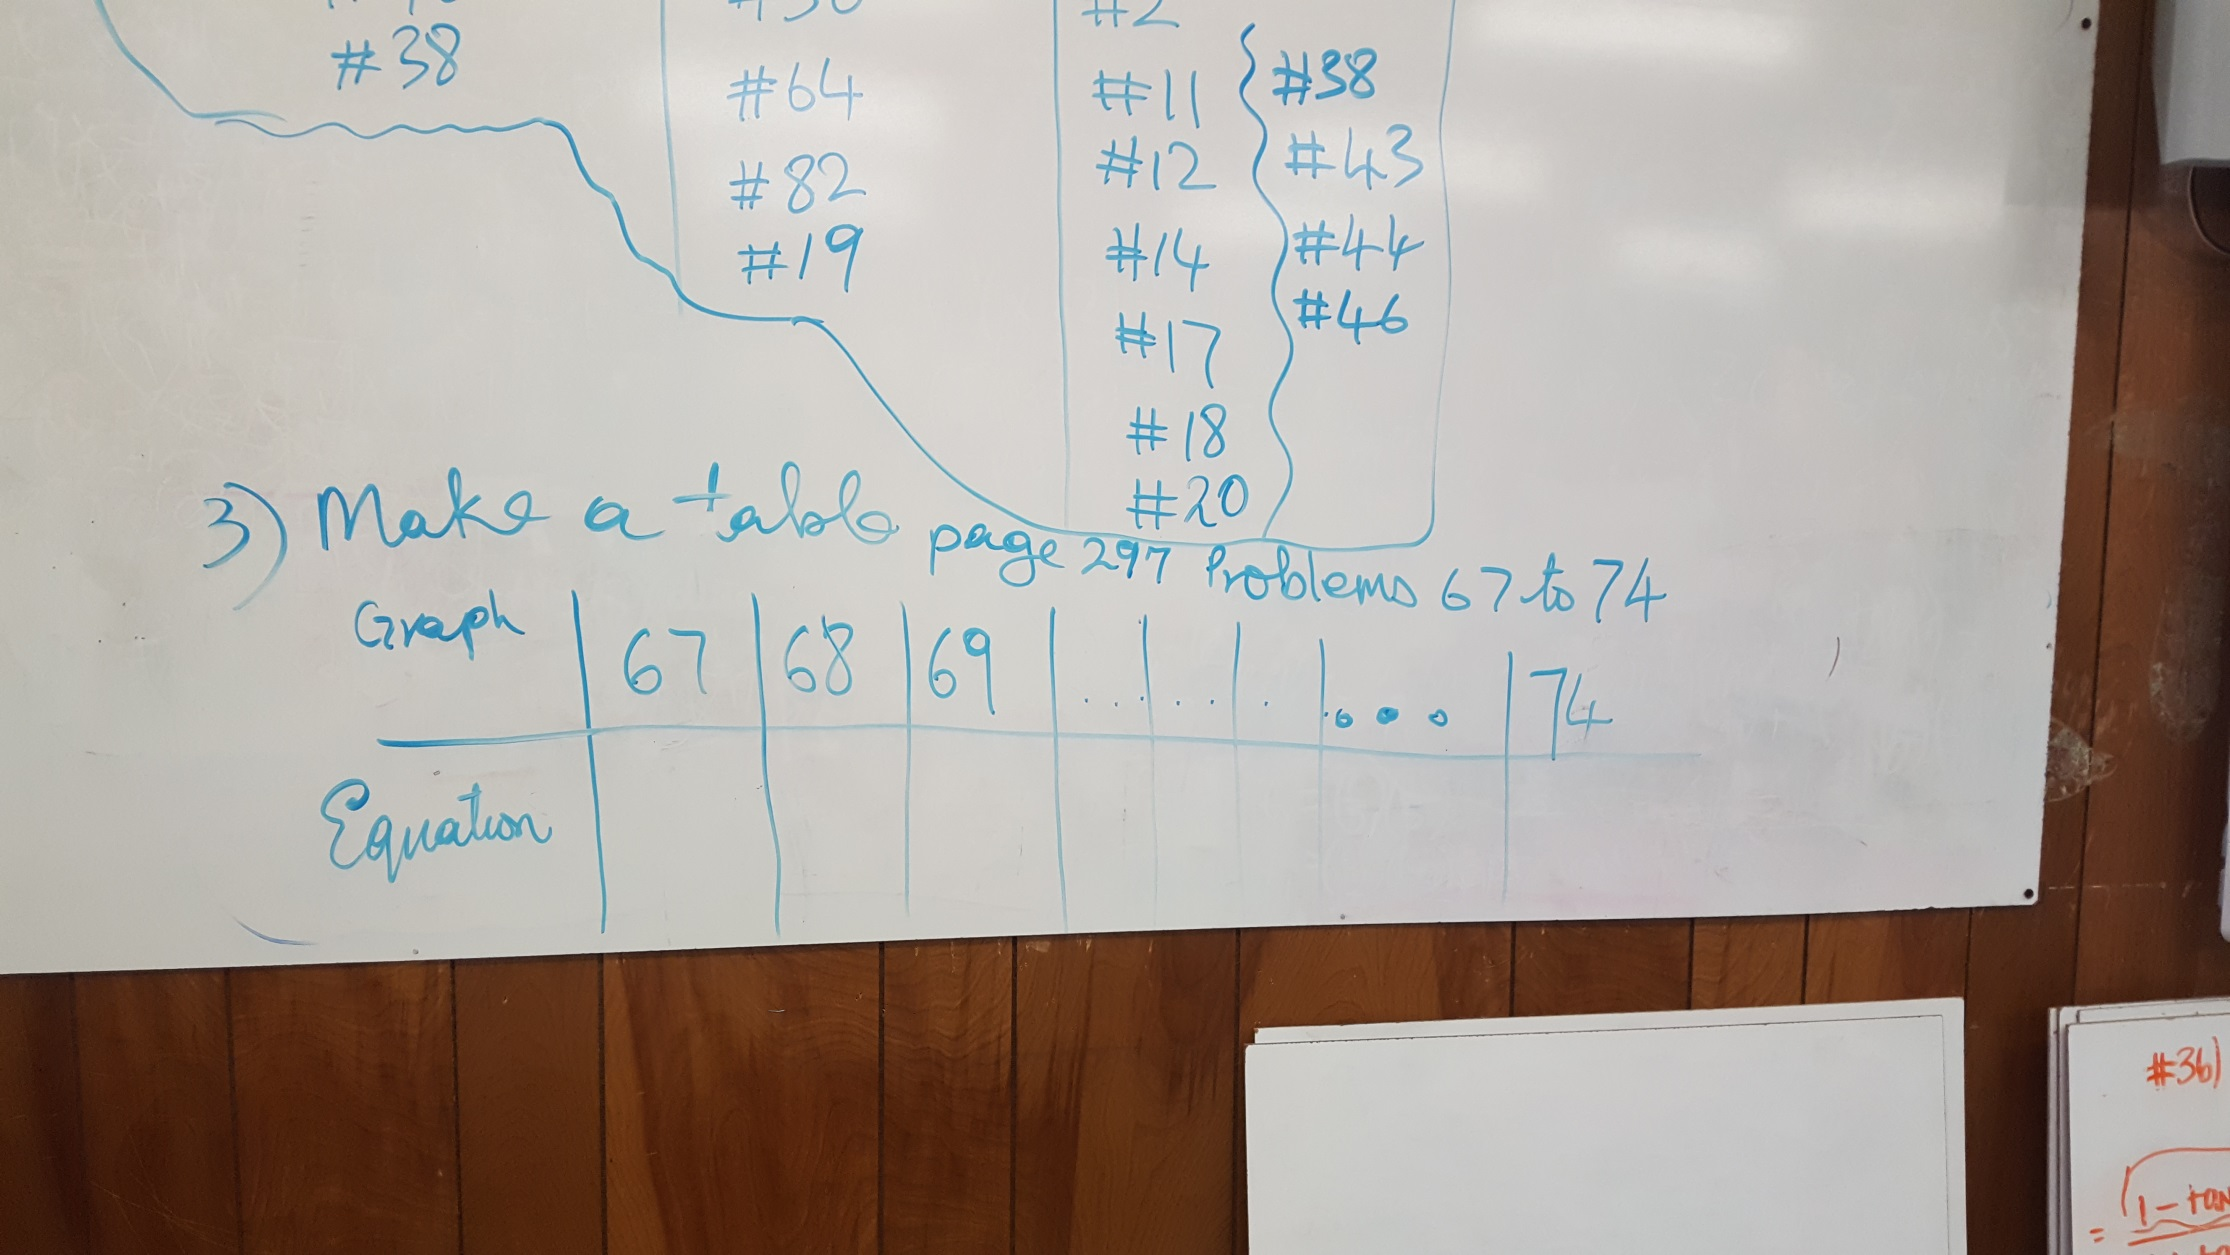 #38
#64
#82
#19
#2
#11
#12
#14
#17
#18
#20
#38
#43
#44
#46
3) Make a table page 297 Problems 67 to 74
Graph 67 68 69 ... .. . .... 74
Equation
#36)
1-tan
=